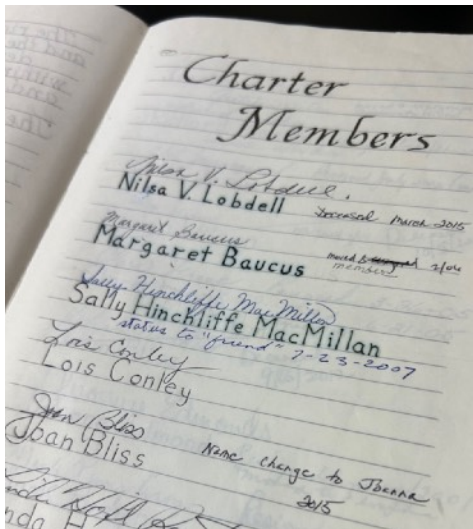 Charter
Members
Nilsa V. Lobdell.
Nilsa V. Lobdell Deceased March 2015
Margaret Baucus
Margaret Baucus moved 2/04
member
Sally Hinchliffe MacMillan
Sally Hinchliffe MacMillan
status to "friend" 7-23-2007
Lois Conley
Lois Conley
Joan Bliss
Joan Bliss Name change to Joanna
2015